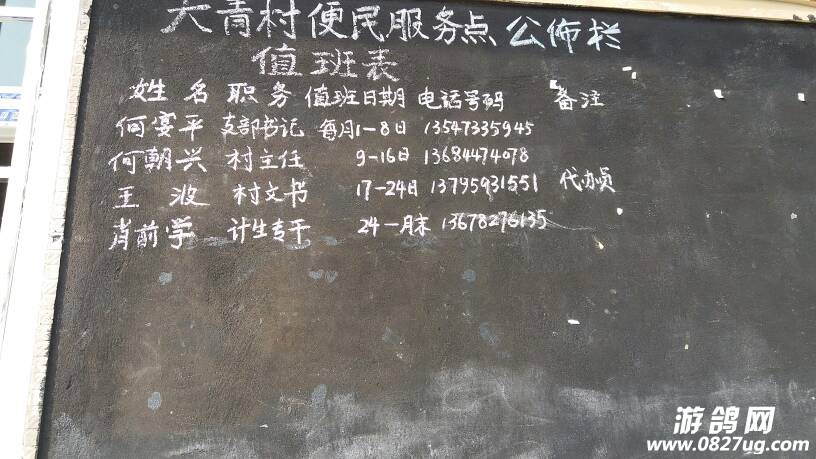 大青村便民服务点公佈栏
值班表
姓名 职务 值班日期 电话号码 备注
何宴平 支部书记 每月1-8日 13547335945
何朝兴 村主任 9-16日 13684474078
王波 村文书 17-24日 13795931551 代办员
肖前学 计生专干 24-月末 13678276135
游鸽网
www.0827ug.com